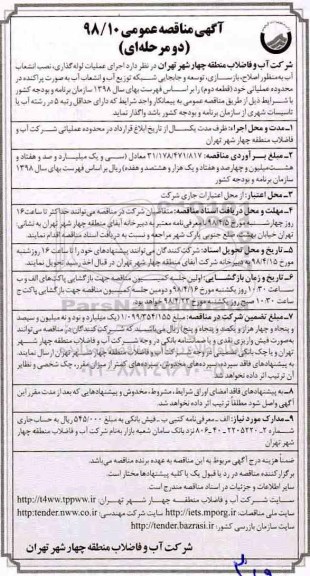 آگهی مناقصه عمومی ۹۸/۱۰
(دو مرحله‌ای)
شرکت آب و فاضلاب منطقه چهار شهر تهران در نظر دارد اجرای عملیات لوله‌گذاری، نصب انشعاب
آب به‌منظور اصلاح، بازسازی، توسعه و جابجایی شبکه توزیع آب و انشعاب آب به صورت پراکنده در
محدوده عملیاتی خود (قطعه دوم) را بر اساس فهرست بهای سال ۱۳۹۸ سازمان برنامه و بودجه کشور
با شرایط ذیل از طریق مناقصه عمومی به پیمانکار واجد شرایط که دارای حداقل رتبه ۵ در رشته آب یا
تاسیسات شهری از سازمان برنامه و بودجه کشور باشد واگذار نماید
۱-مدت و محل اجراء: ظرف مدت یکسال از تاریخ ابلاغ قرارداد در محدوده عملیاتی شرکت آب و
فاضلاب منطقه چهار شهر تهران
۲-مبلغ برآوردی مناقصه: ۳۱/۱۷۸/۴۷۱/۸۱۷ معادل (سی و یک میلیارد و صد و هفتاد و
هشت میلیون و چهارصد و هفتاد و یک هزار و هشتصد و هفده) ریال بر اساس فهرست بهای سال ۱۳۹۸
سازمان برنامه و بودجه کشور
۳-محل اعتبار: از محل اعتبارات جاری شرکت
۴-مهلت و محل دریافت اسناد مناقصه: متقاضیان شرکت در مناقصه می‌توانند حداکثر تا ساعت ۱۶
روز چهارشنبه مورخ ۹۸/۴/۵ با معرفی‌نامه معتبر به دبیرخانه آبفای منطقه چهار شهر تهران به نشانی
تهران خیابان بهشت ضلع جنوبی پارک شهر مراجعه و نسبت به دریافت اسناد مناقصه اقدام نمایند.
۵-تاریخ و محل تحویل اسناد: شرکت کنندگان می‌توانند پیشنهادهای خود را تا ساعت ۱۶ روز شنبه
مورخ ۹۸/۴/۱۵ به دبیرخانه شرکت آبفای منطقه چهار شهر تهران در قبال اخذ رسید تحویل نمایند.
۶-تاریخ و زمان بازگشایی: اولین جلسه کمیسیون مناقصه جهت بازگشایی پاکت‌های الف و ب
ساعت ۱۰:۳۰ روز یکشنبه مورخ ۹۸/۴/۱۶ و دومین جلسه کمیسیون مناقصه جهت بازگشایی پاکت ج
ساعت ۱۰:۳۰ صبح روز یکشنبه مورخ ۹۸/۴/۲۳ خواهد بود.
۷-مبلغ تضمین شرکت در مناقصه: مبلغ ۱/۰۹۹/۳۵۴/۱۵۵ (یک میلیارد و نود و نه میلیون و سیصد
و پنجاه و چهار هزار و یکصد و پنجاه و پنج) ریال می‌باشد که شرکت کنندگان در مناقصه می‌توانند
به صورت فیش واریزی نقدی و یا ضمانتنامه بانکی در وجه شرکت آب و فاضلاب منطقه چهار شهر
تهران و یا چک بانکی تضمینی در وجه شرکت آب و فاضلاب منطقه چهار شهر تهران ارسال نمایند.
به پیشنهادهای فاقد سپرده، سپرده‌های مخدوش، سپرده‌های کمتر از میزان مقرر، چک شخصی و نظایر
آن ترتیب اثر داده نخواهد شد.
۸-به پیشنهادهای فاقد امضای اوراق شرایط، مشروط، مخدوش و پیشنهاد‌هایی که بعد از مدت مقرر این
آگهی واصل شود مطلقاً ترتیب اثر داده نخواهد شد.
۹-مدارک مورد نیاز: الف-معرفی‌نامه کتبی ب-فیش بانکی به مبلغ ۵۴۵/۰۰۰ ریال به حساب جاری
شماره ۴۰۶-۸۰-۲۲۰۵۲۲۰-۲ نزد بانک سامان شعبه بازار به‌نام شرکت آب و فاضلاب منطقه چهار
شهر تهران
ضمناً هزینه درج آگهی مربوط به این مناقصه به عهده برنده مناقصه می‌باشد.
برگزار‌کننده مناقصه در رد یا قبول یک یا کلیه پیشنهادها مختار است
سایر اطلاعات و جزئیات در اسناد مناقصه مندرج است.
سایت شرکت آب و فاضلاب منطقه چهار شهر تهران: http://t4ww.tppww.ir
سایت ملی مناقصات: http://iets.mporg.ir سایت شرکت مهندسی: http:tender.nww.co.ir
سایت سازمان بازرسی کشور: http://tender.bazrasi.ir
شرکت آب و فاضلاب منطقه چهار شهر تهران